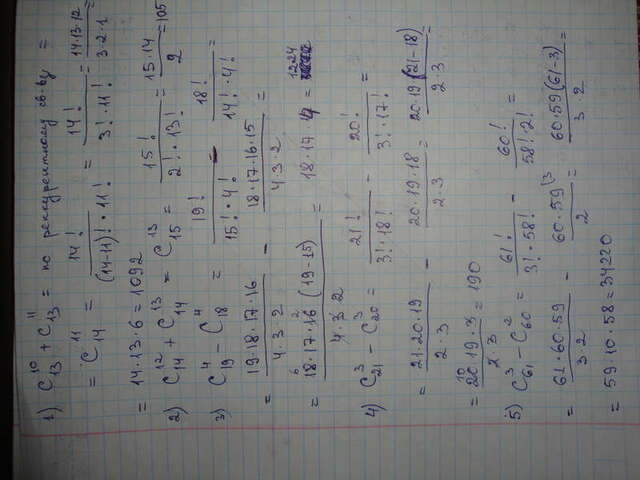 1) C₁₃¹⁰ + C₁₃¹¹ = по реккурентному св-ву =
= C₁₄¹¹ = 14! / (14-11)! · 11! = 14! / 3! · 11! = 14·13·12 / 3·2·1
= 14·13·6 = 1092
2) C₁₄¹² + C₁₄¹³ = C₁₅¹³ = 15! / 2! · 13! = 15·14 / 2 = 105
3) C₁₉⁴ - C₁₈⁴ = 19! / 15! · 4! - 18! / 14! · 4! =
= 19·18·17·16 / 4·3·2 - 18·17·16·15 / 4·3·2 =
= 18·17·16 (19-15) / 4·3·2 = 18·17·4 = 1224
4) C₂₁³ - C₂₀³ = 21! / 3! · 18! - 20! / 3! · 17! =
= 21·20·19 / 2·3 - 20·19·18 / 2·3 = 20·19 (21-18) / 2·3
= 20·19·3 / 2·3 = 190
5) C₆₁³ - C₆₀² = 61! / 3! · 58! - 60! / 58! · 2! =
= 61·60·59 / 3·2 - 60·59 / 2 = 60·59 (61-3) / 3·2 =
= 59·10·58 = 34220